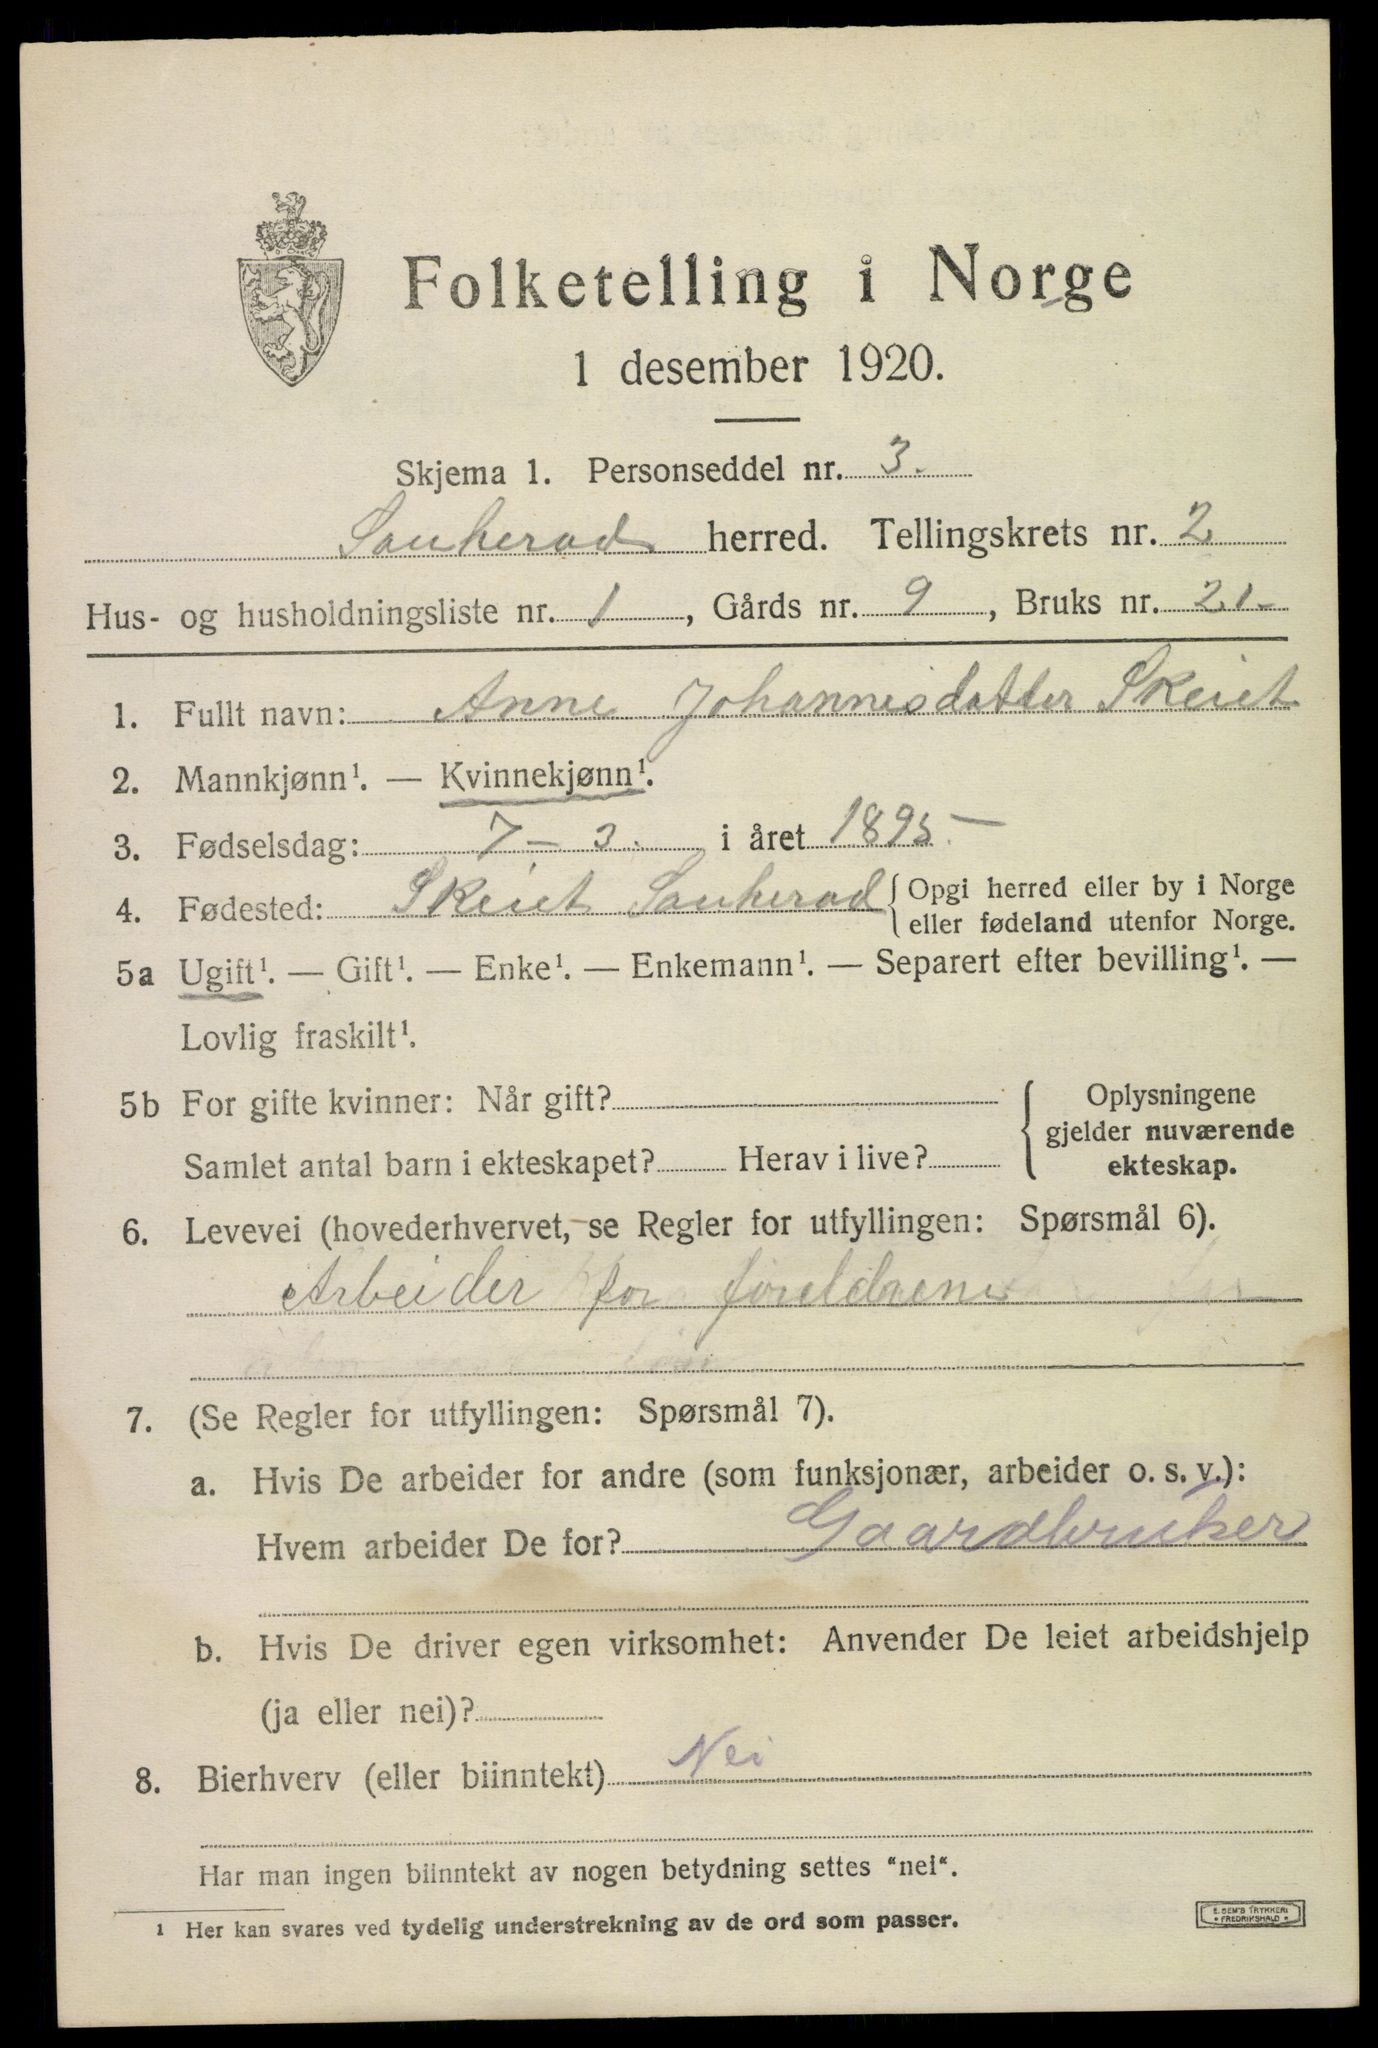 Folketelling i Norge
1 desember 1920.
Skjema 1. Personseddel nr. 3.
Sauherad herred. Tellingskrets nr. 2
Hus- og husholdningsliste nr. 1, Gårds nr. 9, Bruks nr. 21-
1. Fullt navn: Anne Johannesdatter Skeiet
2. Mannkjønn¹. — Kvinnekjønn¹.
3. Fødselsdag: 7-3. i året 1895-
4. Fødested: Skeiet Sauherad { Opgi herred eller by i Norge
eller fødeland utenfor Norge.
5a Ugift¹. — Gift¹. — Enke¹. — Enkemann¹. — Separert efter bevilling¹. —
Lovlig fraskilt¹.
5b For gifte kvinner: Når gift?
Samlet antal barn i ekteskapet? Herav i live?
Oplysningene
gjelder nuværende
ekteskap.
6. Levevei (hovederhvervet, se Regler for utfyllingen: Spørsmål 6).
Arbeider for foreldrene
7. (Se Regler for utfyllingen: Spørsmål 7).
a. Hvis De arbeider for andre (som funksjonær, arbeider o. s. v.):
Hvem arbeider De for? Gaardbruker
b. Hvis De driver egen virksomhet: Anvender De leiet arbeidshjelp
(ja eller nei)?
8. Bierhverv (eller biinntekt) Nei
Har man ingen biinntekt av nogen betydning settes "nei".
¹ Her kan svares ved tydelig understrekning av de ord som passer.
E. SEM'S TRYKKERI
* FREDRIKSHALD *